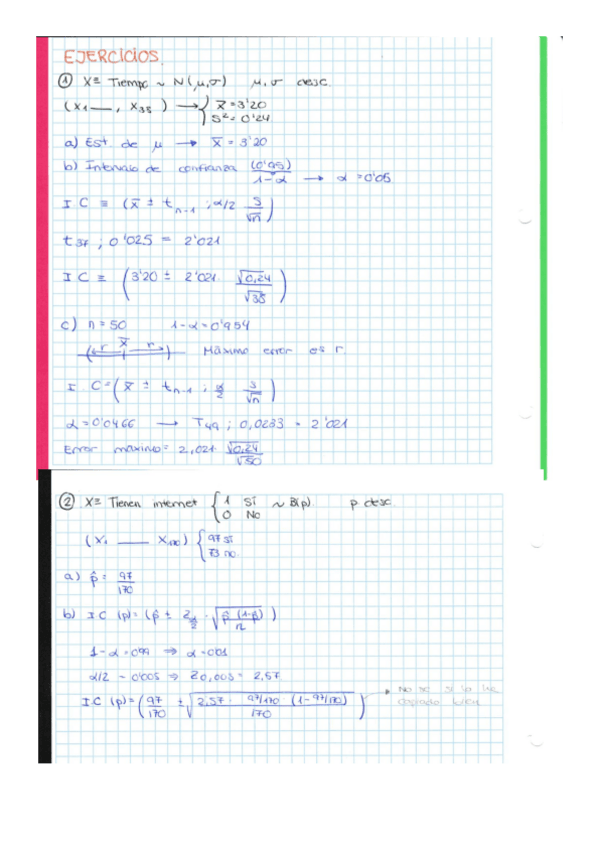 EJERCICIOS.
① X≡ Tiempo ~ N(μ,σ) μ, σ desc.
(X1 —, X38) → { x̄ = 3'20
S² = 0'24
a) Est de μ → x̄ = 3'20
b) Intervalo de confianza (0'95) → α = 0'05
1-α
I C ≡ (x̄ ± t n-1 ; α/2 S/√n)
t 37 ; 0'025 = 2'021
I C ≡ (3'20 ± 2'021. √0,24/√38)
c) n = 50 1-α = 0'954
r x̄ r Máximo error es r.
I C = (x̄ ± t n-1 ; α/2 S/√n)
α = 0'0466 → T49 ; 0,0233 = 2'021
Error máximo = 2,021. √0,24/√50
② X≡ Tienen internet { 1 SÍ ~ B(p). p desc.
0 No
(X1 — X170) { 97 sí
73 no.
a) p̂ = 97/170
b) I C (p) = (p̂ ± Zα/2 · √p̂ (1-p̂)/n)
1-α = 0'99 ⇒ α = 0'01
α/2 = 0'005 ⇒ Z0,005 = 2,57.
I.C (p) = (97/170 ± √2,57· 97/170 (1-97/170)/170) → No se si lo he
copiado bien